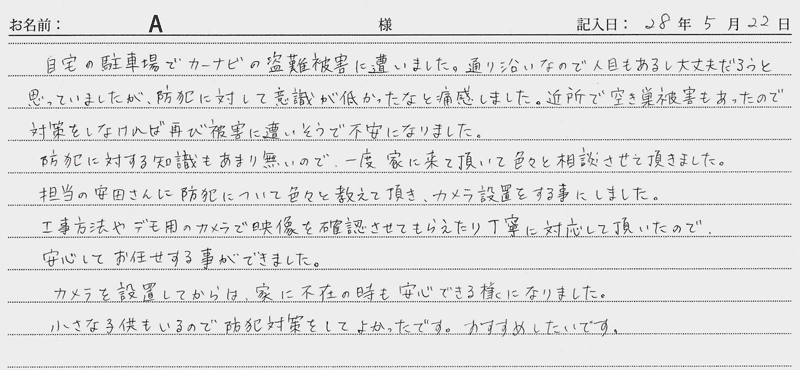 お名前： A 様 記入日： 28 年 5 月 22 日
自宅の駐車場でカーナビの盗難被害に遭いました。通り沿いなので人目もあるし大丈夫だろうと
思っていましたが、防犯に対して意識が低かったなと痛感しました。近所で空き巣被害もあったので
対策をしなければ再び被害に遭いそうで不安になりました。
防犯に対する知識もあまり無いので、一度家に来て頂いて色々と相談させて頂きました。
担当の安田さんに防犯について色々と教えて頂き、カメラ設置をする事にしました。
工事方法やデモ用のカメラで映像を確認させてもらえたり丁寧に対応して頂いたので、
安心してお任せする事ができました。
カメラを設置してからは、家に不在の時も安心できる様になりました。
小さな子供もいるので防犯対策をしてよかったです。おすすめしたいです。